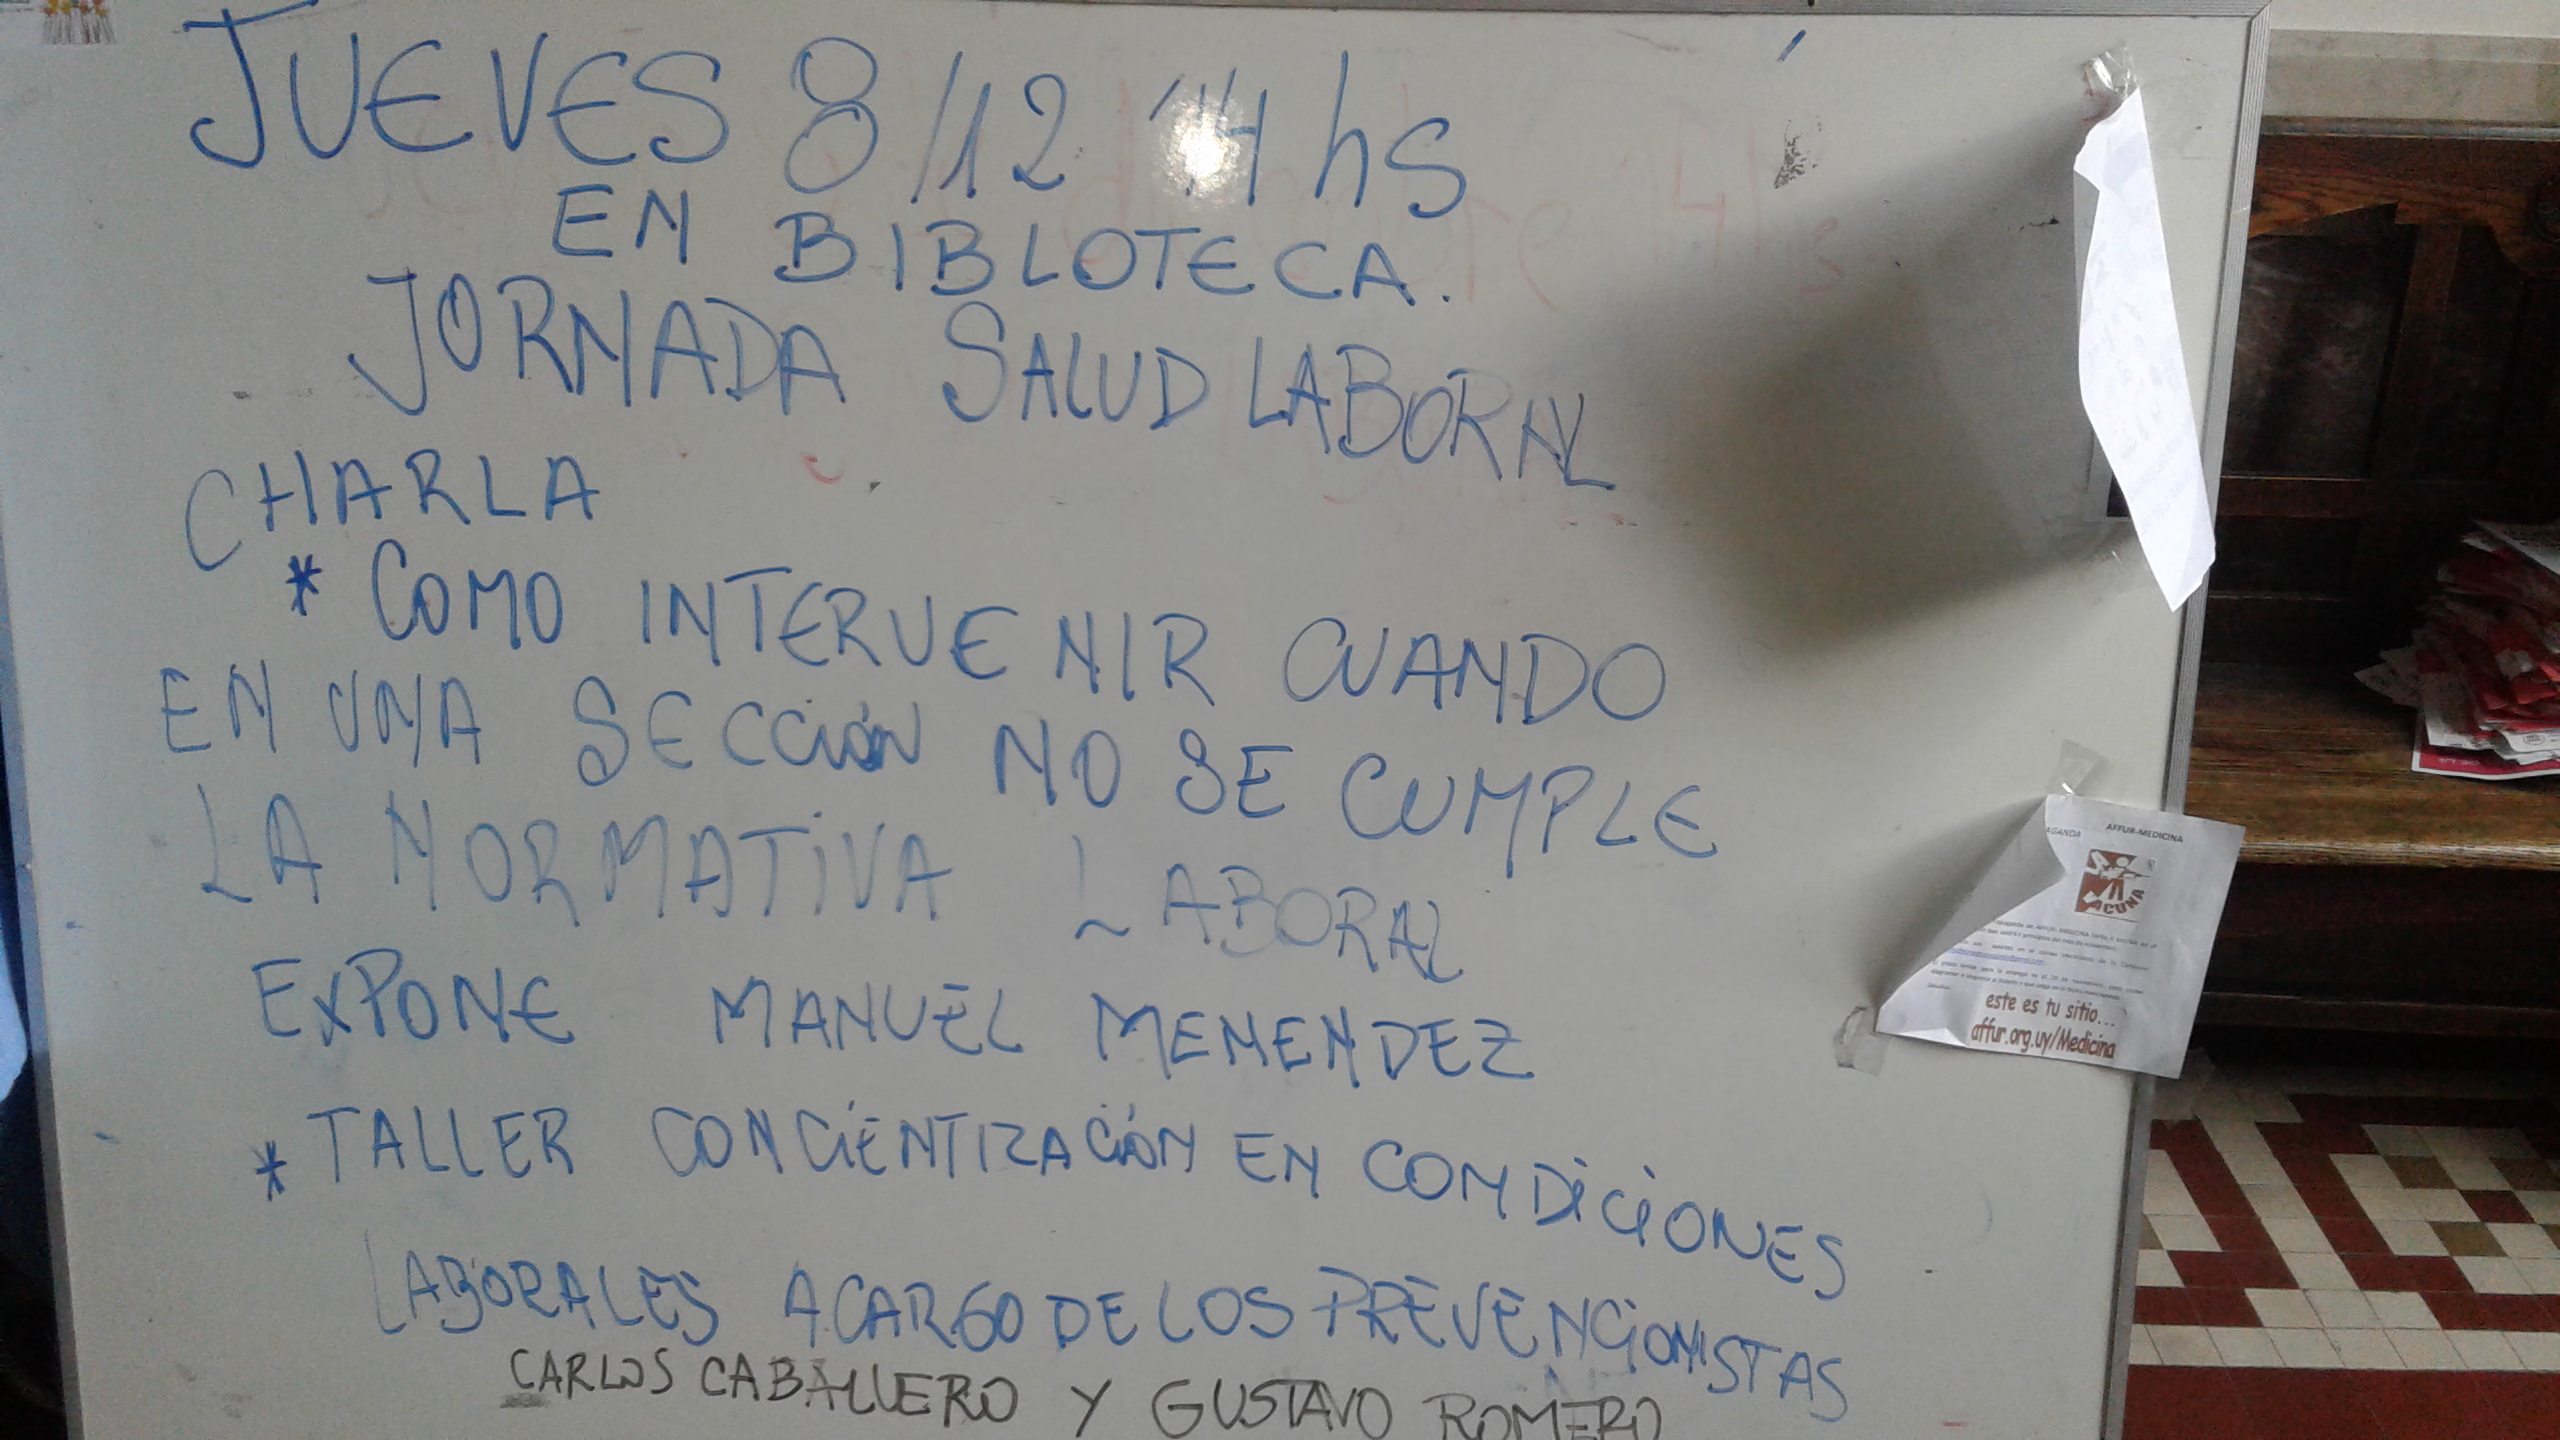 JUEVES 8/12 14 hs
EN BIBLOTECA.
JORNADA SALUD LABORAL
CHARLA
* COMO INTERVENIR CUANDO
EN UNA SECCIÓN NO SE CUMPLE
LA NORMATIVA LABORAL
EXPONE MANUEL MENENDEZ
* TALLER CONCIENTIZACIÓN EN CONDICIONES
LABORALES ACARGO DE LOS PREVENCIONISTAS
CARLOS CABALLERO Y GUSTAVO ROMERO
AGANDA AFFUR-MEDICINA
VACUNA
este es tu sitio...
affur.org.uy/Medicina